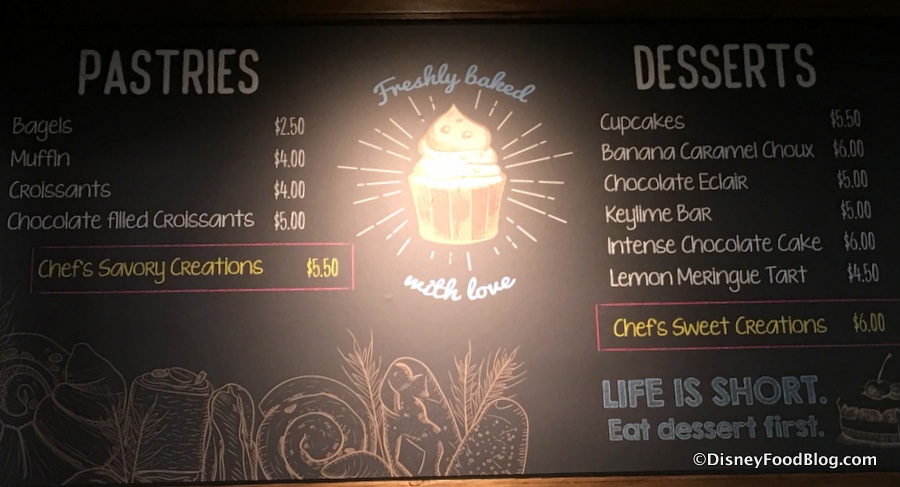 PASTRIES
Bagels $2.50
Muffin $4.00
Croissants $4.00
Chocolate filled Croissants $5.00
Chef's Savory Creations $5.50
Freshly baked
with love
DESSERTS
Cupcakes $5.50
Banana Caramel Choux $6.00
Chocolate Eclair $5.00
Keylime Bar $5.00
Intense Chocolate Cake $6.00
Lemon Meringue Tart $4.50
Chef's Sweet Creations $6.00
LIFE IS SHORT.
Eat dessert first.
©DisneyFoodBlog.com